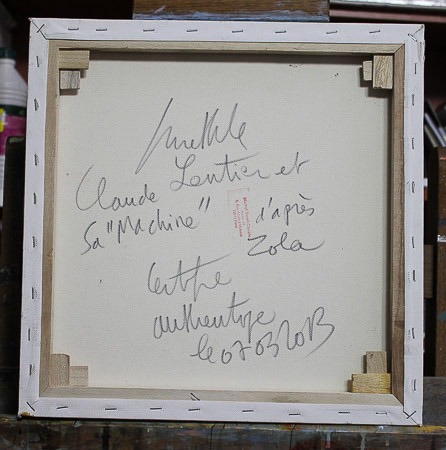 Claude Lantier et
Sa "Machine" d'après
Zola
Certifie
authentique
le 07032013